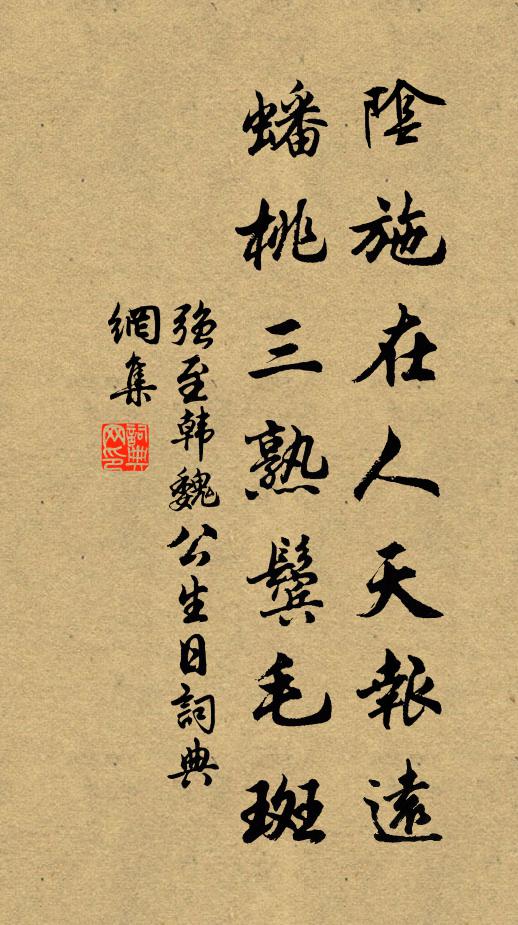 陰施在人天報遠
蟠桃三熟鬢毛斑
強至韩魏公生日詞典
網集
詞典网印